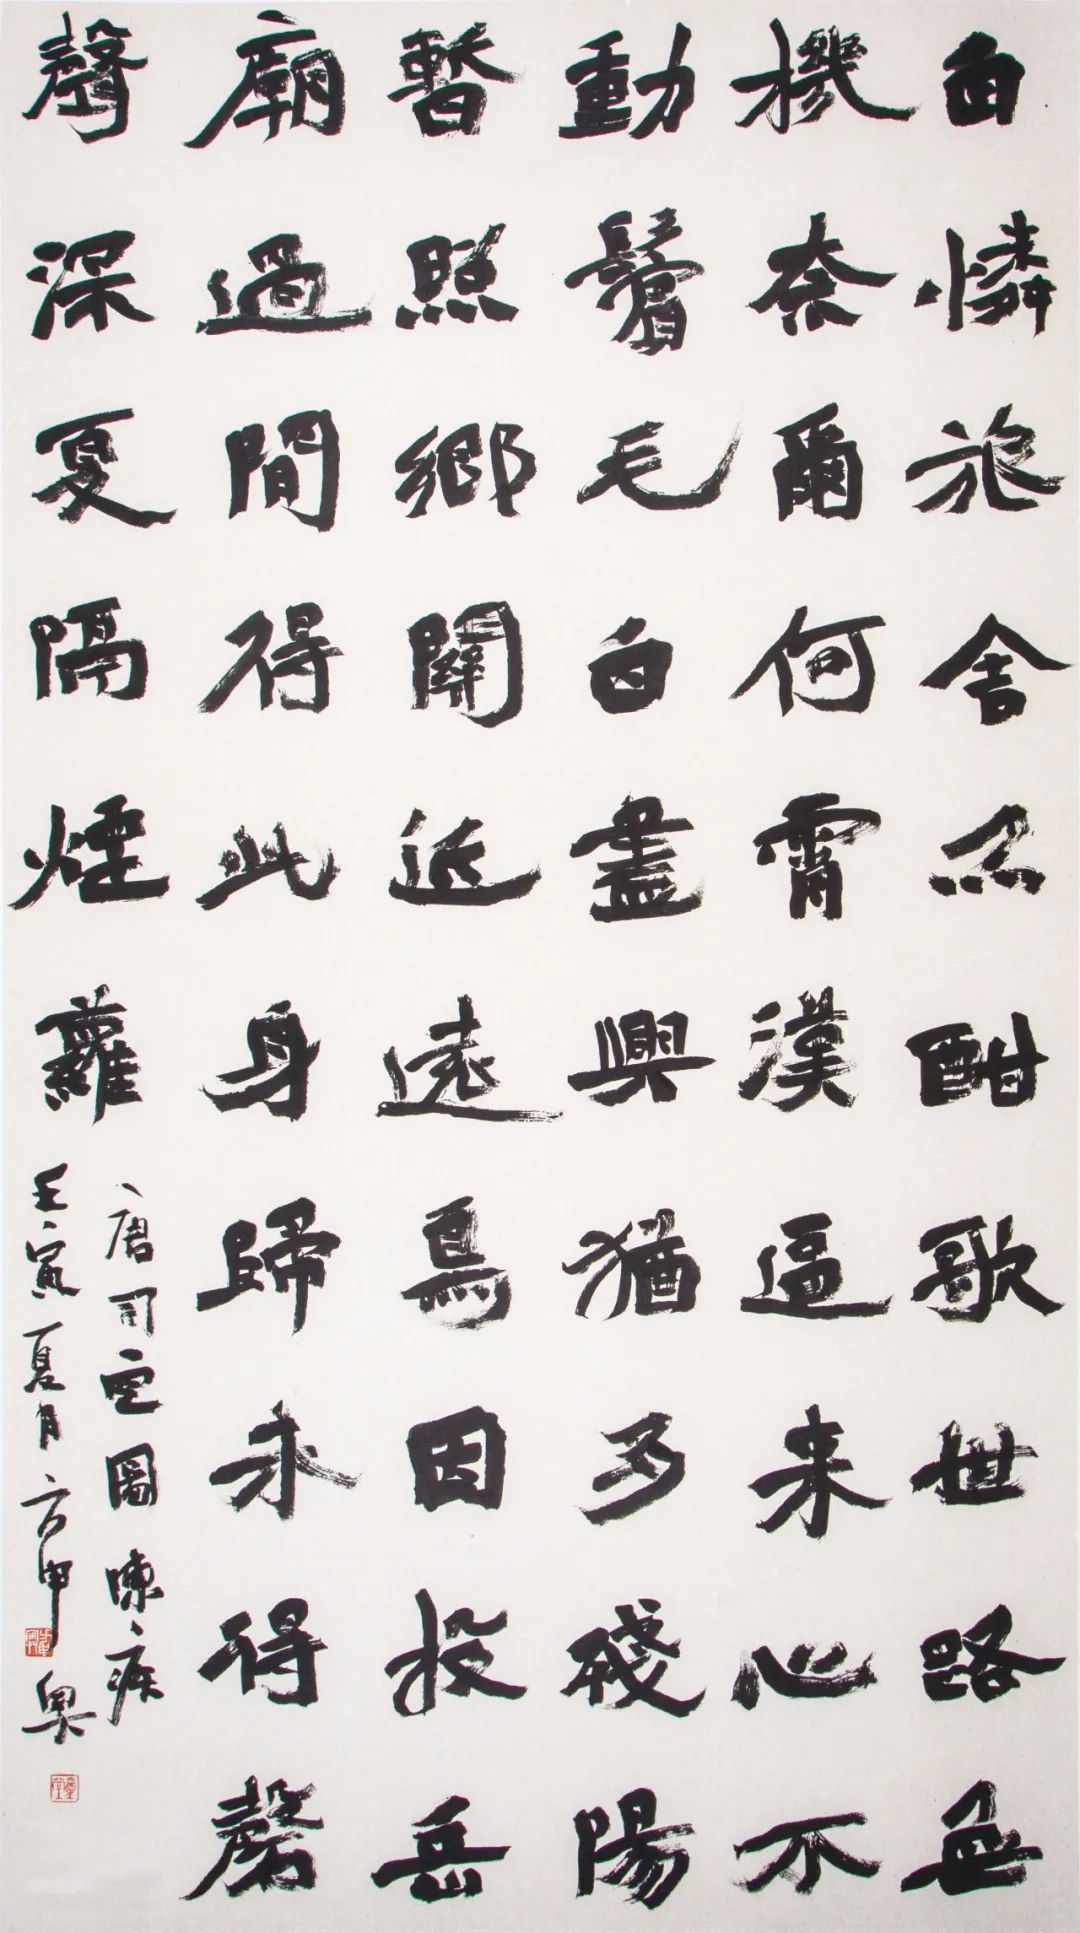 自憐旅舍亦酣歌世路無
機奈爾何霄漢逼来心不
動鬢毛白盡興猶多殘陽
暫照鄉關近遠鳥因投岳
廟過閒得此身歸未得磬
聲深夏隔煙蘿
唐司空圖陳疾
壬寅夏月方申